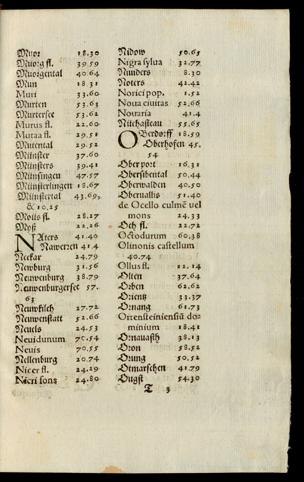 Muor 18.30
Muorg fl. 39.59
Muorgental 40.64
Mun 18.31
Muri 33.60
Murten 53.63
Murterset 53.62
Murus fl. 22.60
Mutaa fl. 29.51
Mutental 29.52
Münster 37.60
Münsters 39.41
Münsingen 47.57
Münsterlingen 18.67
Münstertal 43.69,
& 10.25
Moils fl. 28.17
Myß 22.26
NAters 41.40
Nawerzen 41.4
Neckar 24.79
Newburg 31.56
Neuwenburg 38.79
Neuwenburgerset 57.
63
Neuwkilch 27.72
Neuwenstatt 52.66
Neuels 24.53
Neuidunum 70.54
Neuis 70.55
Nellenburg 20.74
Nicer fl. 24.19
Nicri fons 24.80
Nidow 50.65
Nigra sylua 32.77
Nuuders 8.30
Noters 41.42
Norici pop. 1.52
Noua ciuitas 52.66
Nouaria 41.4
Nüchasteau 55.65
OBerdorff 18.59
Oberhofen 45.
54
Oberport 16.31
Obersibental 50.44
Oberwalden 40.50
Oberuallis 51.40
de Ocello culmē uel
mons 24.33
Och fl. 22.72
Octodurum 60.38
Olinonis castellum
40.74
Ollus fl. 12.14
Olten 37.64
Orben 62.62
Orientz 33.37
Ornang 61.73
Ortensteinensiū do-
minium 18.41
Ornauasth 38.13
Oron 58.52
Orung 50.52
Otmarschen 41.79
Ougst 54.30
T 3